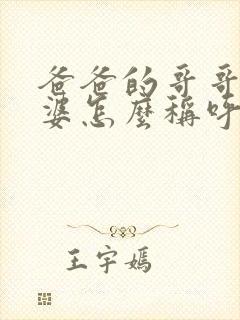 爸爸的哥哥
婆怎麼稱呼
王宇嫣